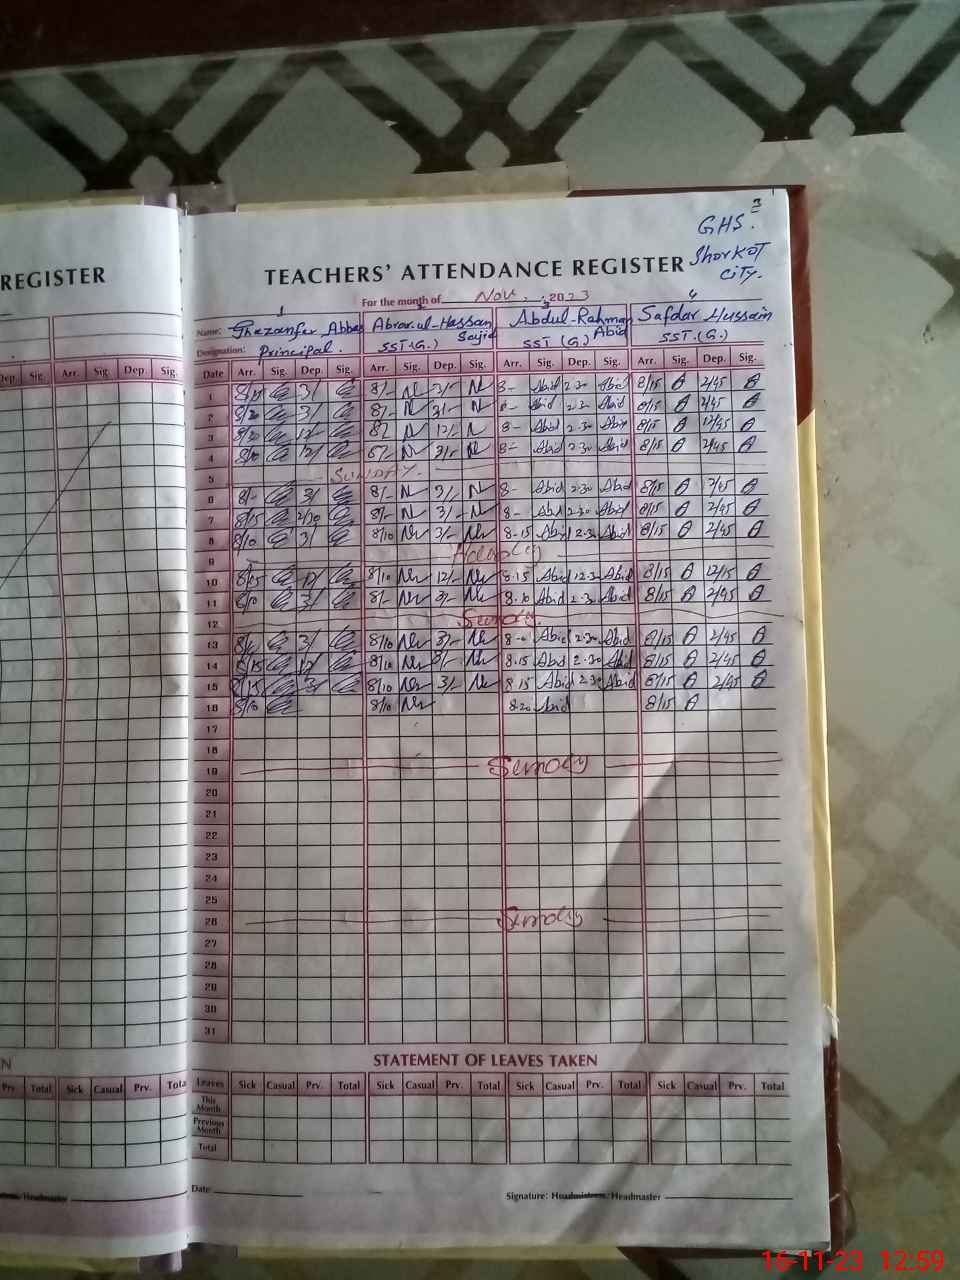 3
GHS.
Shorkot
City.
REGISTER
TEACHERS' ATTENDANCE REGISTER
For the month of Nov. 2023
1 2 3 4
Name: Ghazanfer Abbas Abrar-ul-Hassan Sajid Abdul-Rahman Abid Safdar Hussain
Designation: Principal. SST.(G.) SST (G.) SST.(G.)
Dep. Sig. Arr. Sig Dep. Sig. Date Arr. Sig. Dep. Sig. Arr. Sig. Dep. Sig. Arr. Sig. Dep. Sig. Arr. Sig. Dep. Sig.
1 8/15 3/ 8/- 3/- 8- Abid 2.30 Abid 8/15 2/45
2 8/20 3/ 8/- 3/- Abid 2.30 Abid 8/15 2/45
3 8/20 12/- 8- Abid 2.30 Abid 8/15 12/45
4 8/10 12/ 3/- 8- Abid 2.30 Abid 8/15 2/45
5 SUNDAY.
6 8/- 3/ 8/- 3/- 8- Abid 2.30 Abid 8/15 2/45
7 8/15 2/30 8/- 3/- 8- Abid 2.30 Abid 8/15 2/45
8 8/10 3/ 8/10 3/- 8-15 Abid 2.30 Abid 8/15 2/45
9
10 8/10 12/- 8.15 Abid 12.30 Abid 8/15 12/15
11 3/ 8/- 3/- 8.10 Abid 2.30 Abid 8/15 2/45
12 Sunday.
13 3/ 8/10 3/- Abid 2.30 Abid 8/15 2/45
14 8/15 8/10 8.15 Abid 2.30 Abid 8/15 2/45
15 8/15 3/ 8/10 3/- 8.15 Abid 2.30 Abid 8/15 2/45
16 8/10 8/10 8.20 Abid 8/15
17
18
19 Sunday
20
21
22
23
24
25
26 Sunday
27
28
29
30
31
N STATEMENT OF LEAVES TAKEN
Prv. Total Sick Casual Prv. Total Leaves Sick Casual Prv. Total Sick Casual Prv. Total Sick Casual Prv. Total Sick Casual Prv. Total
This Month
Previous Month
Total
Date:
/Headmaster Signature: Headmistress/Headmaster
16-11-23 12:59